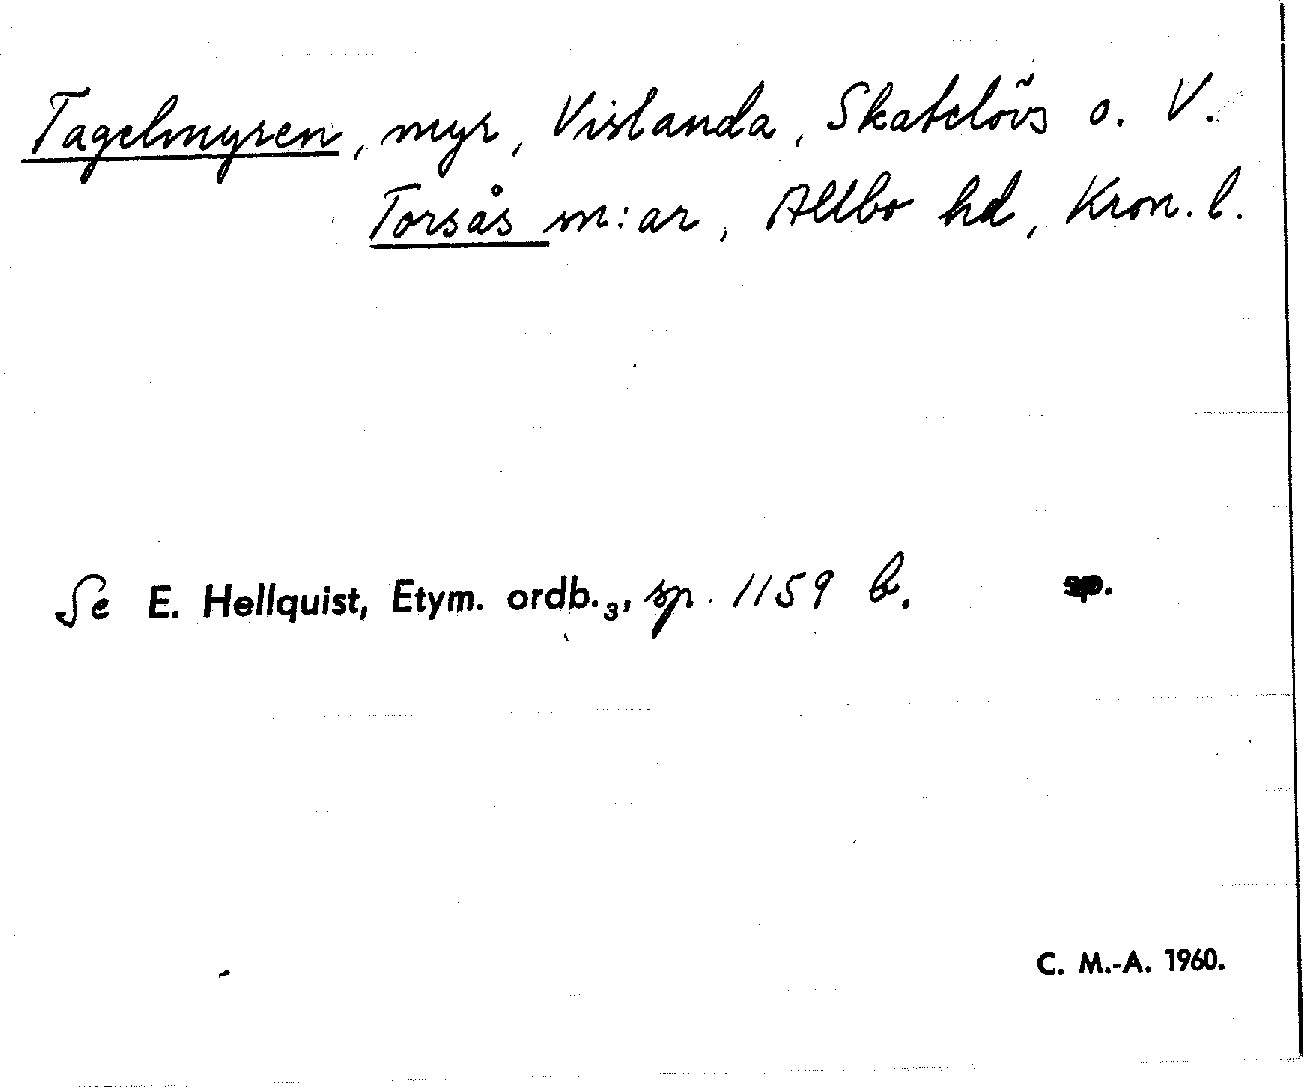 Tagelmyren, myr, Vislanda, Skatelövs o. V.
Torsås m:ar, Allbo hd, Kron. l.
Se E. Hellquist, Etym. ordb.₃, sp. 1159 b. sp.
C. M.-A. 1960.